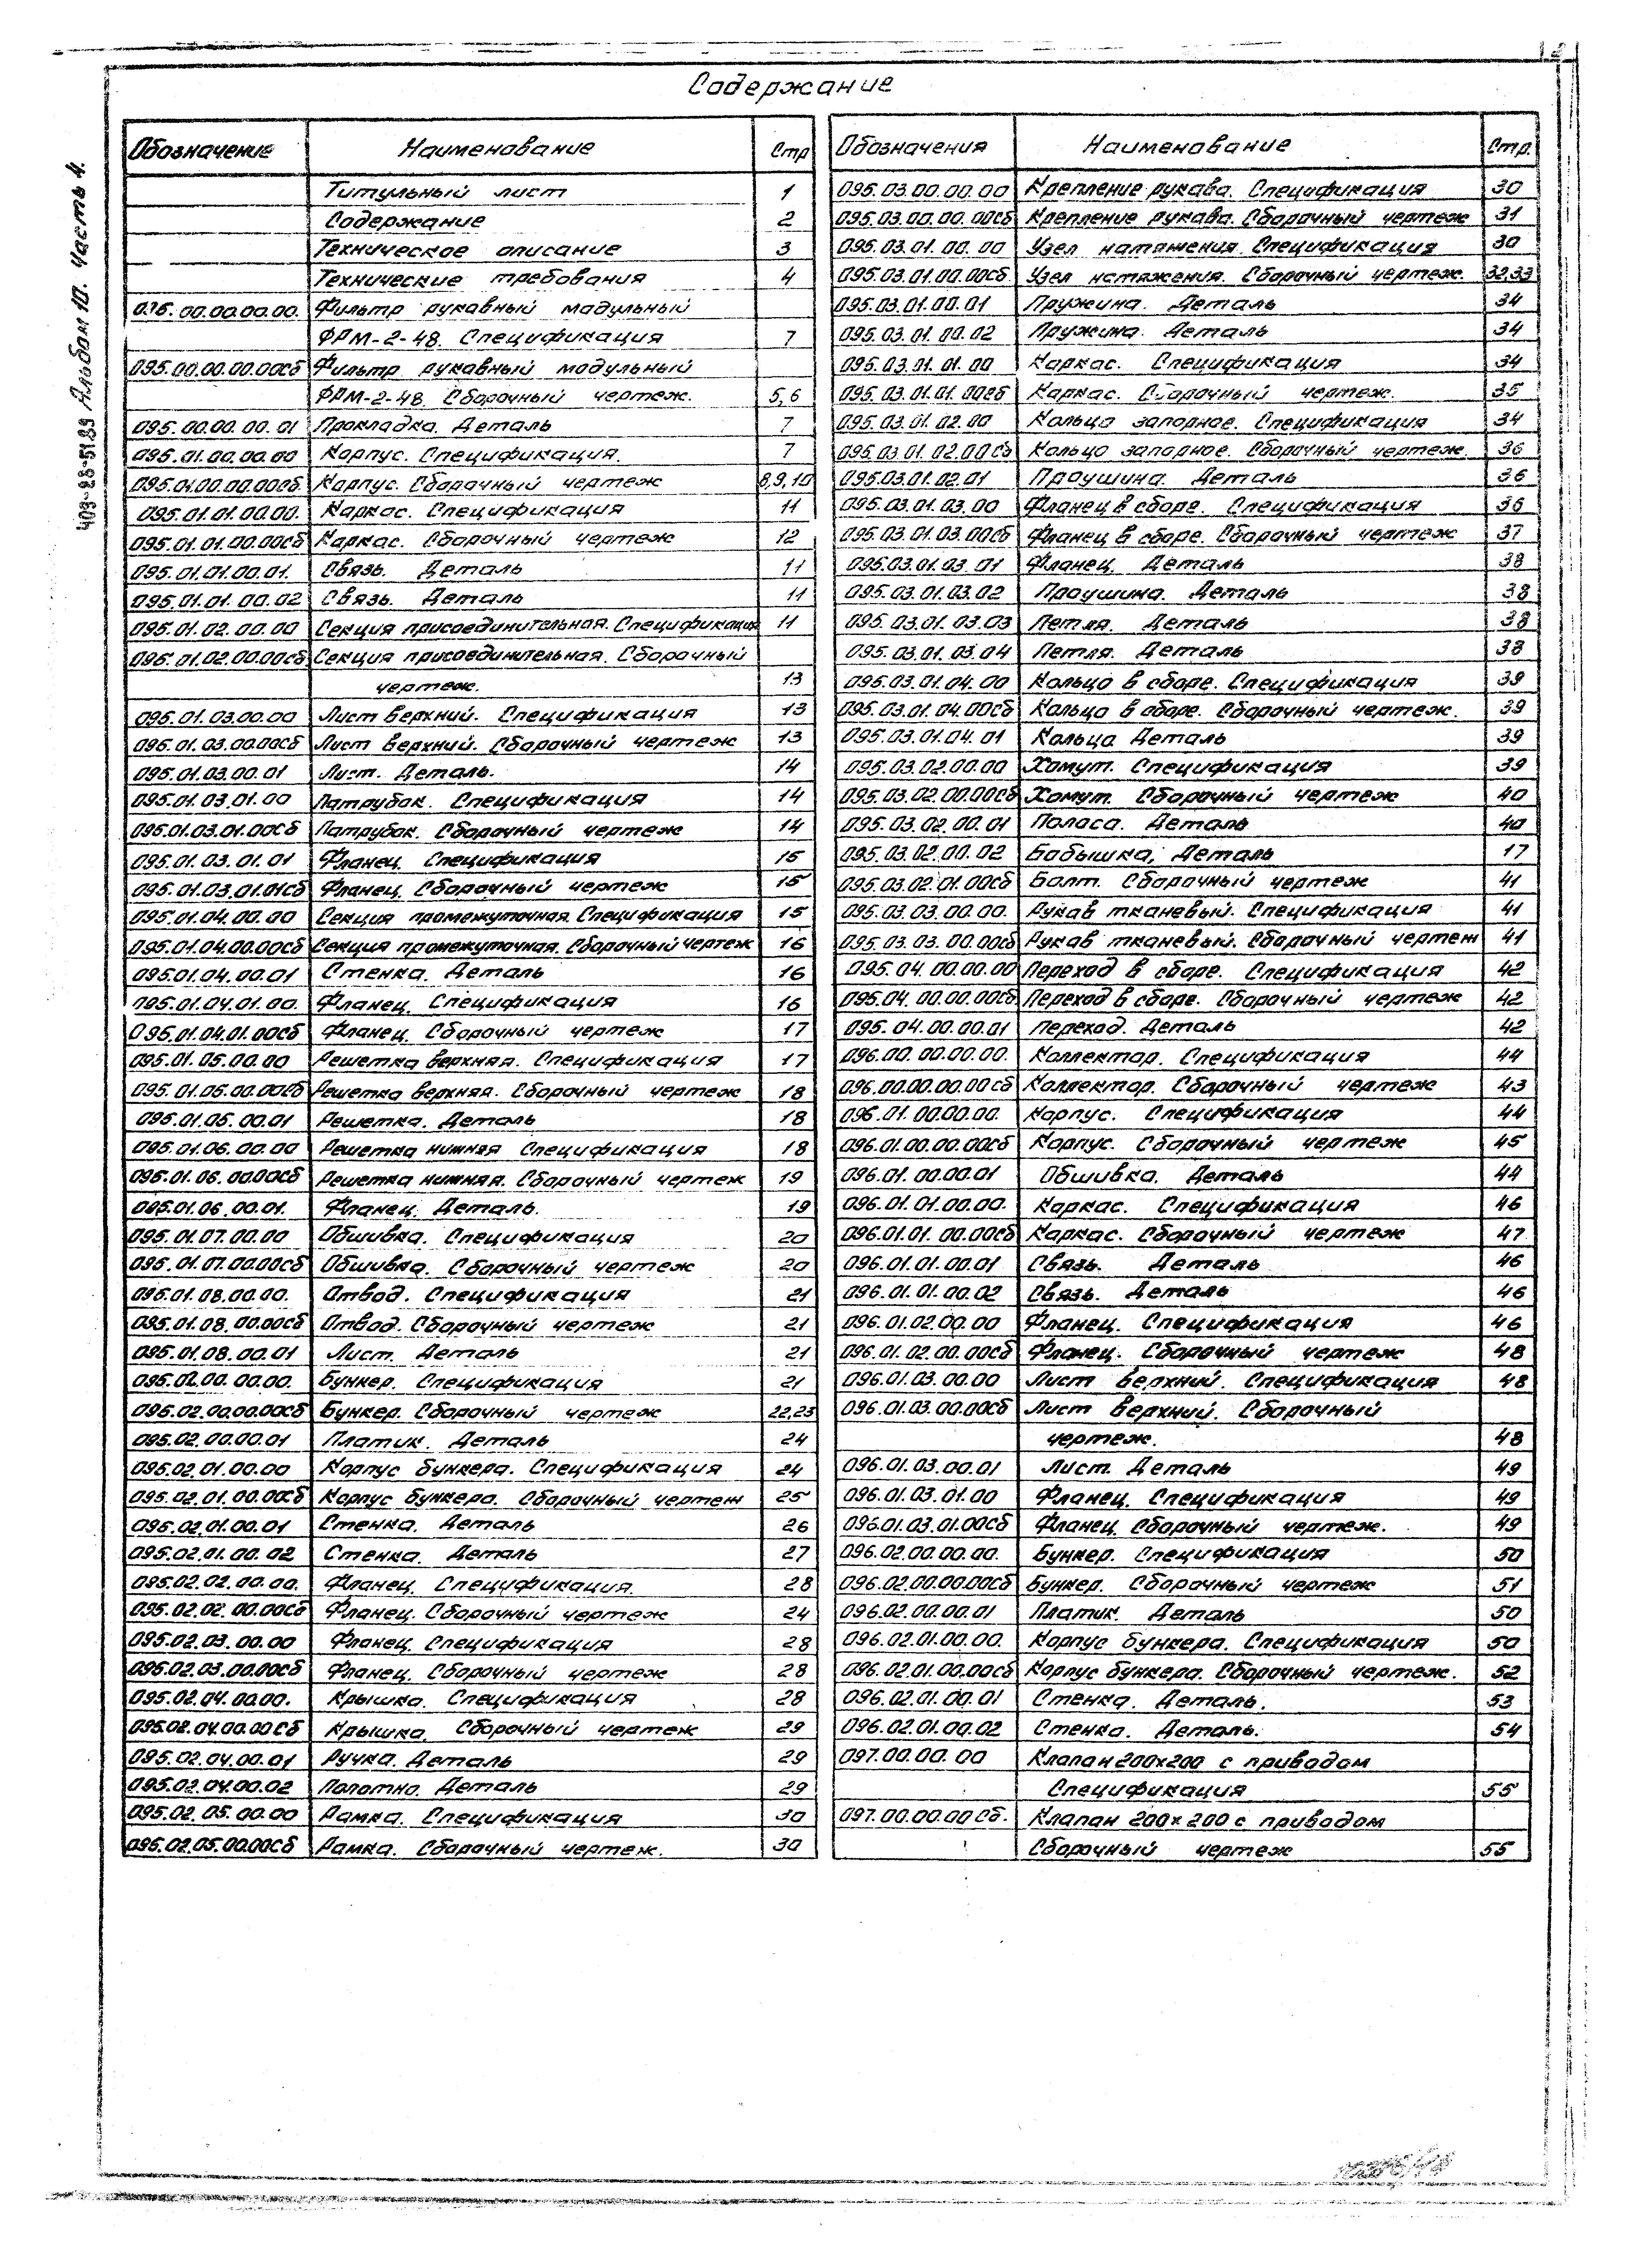 2
Содержание
403-28-51.89 Альбом 10. Часть 4.
Обозначение Наименование Стр
Титульный лист 1
Содержание 2
Техническое описание 3
Технические требования 4
095.00.00.00.00. Фильтр рукавный модульный
ФРМ-2-48. Спецификация 7
095.00.00.00.00Сб Фильтр рукавный модульный
ФРМ-2-48. Сборочный чертеж. 5,6
095.00.00.00.01 Прокладка. Деталь 7
095.01.00.00.00 Корпус. Спецификация. 7
095.01.00.00.00Сб. Корпус. Сборочный чертеж 8,9,10
095.01.01.00.00. Каркас. Спецификация 11
095.01.01.00.00Сб Каркас. Сборочный чертеж 12
095.01.01.00.01. Связь. Деталь 11
095.01.01.00.02 Связь. Деталь 11
095.01.02.00.00 Секция присоединительная. Спецификация 11
095.01.02.00.00Сб Секция присоединительная. Сборочный
чертеж. 13
095.01.03.00.00 Лист верхний. Спецификация 13
095.01.03.00.00Сб Лист верхний. Сборочный чертеж 13
095.01.03.00.01 Лист. Деталь. 14
095.01.03.01.00 Патрубок. Спецификация 14
095.01.03.01.00Сб Патрубок. Сборочный чертеж 14
095.01.03.01.01 Фланец. Спецификация 15
095.01.03.01.01Сб Фланец. Сборочный чертеж 15
095.01.04.00.00 Секция промежуточная. Спецификация 15
095.01.04.00.00Сб Секция промежуточная. Сборочный чертеж 16
095.01.04.00.01 Стенка. Деталь 16
095.01.04.01.00. Фланец. Спецификация 16
095.01.04.01.00Сб Фланец. Сборочный чертеж 17
095.01.05.00.00 Решетка верхняя. Спецификация 17
095.01.05.00.00Сб Решетка верхняя. Сборочный чертеж 18
095.01.05.00.01 Решетка. Деталь 18
095.01.06.00.00 Решетка нижняя Спецификация 18
095.01.06.00.00Сб Решетка нижняя. Сборочный чертеж 19
095.01.06.00.01. Фланец. Деталь. 19
095.01.07.00.00 Обшивка. Спецификация 20
095.01.07.00.00Сб Обшивка. Сборочный чертеж 20
095.01.08.00.00. Отвод. Спецификация 21
095.01.08.00.00Сб Отвод. Сборочный чертеж 21
095.01.08.00.01 Лист. Деталь 21
095.02.00.00.00. Бункер. Спецификация 21
095.02.00.00.00Сб Бункер. Сборочный чертеж 22,23
095.02.00.00.01 Платик. Деталь 24
095.02.01.00.00 Корпус бункера. Спецификация 24
095.02.01.00.00Сб Корпус бункера. Сборочный чертеж 25
095.02.01.00.01 Стенка. Деталь 26
095.02.01.00.02 Стенка. Деталь 27
095.02.02.00.00. Фланец. Спецификация. 28
095.02.02.00.00Сб Фланец. Сборочный чертеж 24
095.02.03.00.00 Фланец. Спецификация 28
095.02.03.00.00Сб Фланец. Сборочный чертеж 28
095.02.04.00.00. Крышка. Спецификация 28
095.02.04.00.00Сб Крышка. Сборочный чертеж 29
095.02.04.00.01 Ручка. Деталь 29
095.02.04.00.02 Полотно. Деталь 29
095.02.05.00.00 Рамка. Спецификация 30
095.02.05.00.00Сб Рамка. Сборочный чертеж. 30
Обозначения Наименование Стр.
095.03.00.00.00 Крепление рукава. Спецификация 30
095.03.00.00.00Сб Крепление рукава. Сборочный чертеж 31
095.03.01.00.00 Узел натяжения. Спецификация 30
095.03.01.00.00Сб Узел натяжения. Сборочный чертеж. 32,33
095.03.01.00.01 Пружина. Деталь 34
095.03.01.00.02 Пружина. Деталь 34
095.03.01.01.00 Каркас. Спецификация 34
095.03.01.01.00Сб Каркас. Сборочный чертеж. 35
095.03.01.02.00 Кольцо запорное. Спецификация 34
095.03.01.02.00Сб Кольцо запорное. Сборочный чертеж. 36
095.03.01.02.01 Проушина. Деталь 36
095.03.01.03.00 Фланец в сборе. Спецификация 36
095.03.01.03.00Сб Фланец в сборе. Сборочный чертеж 37
095.03.01.03.01 Фланец. Деталь 38
095.03.01.03.02 Проушина. Деталь 38
095.03.01.03.03 Петля. Деталь 38
095.03.01.03.04 Петля. Деталь 38
095.03.01.04.00 Кольцо в сборе. Спецификация 39
095.03.01.04.00Сб Кольцо в сборе. Сборочный чертеж. 39
095.03.01.04.01 Кольцо Деталь 39
095.03.02.00.00 Хомут. Спецификация 39
095.03.02.00.00Сб Хомут. Сборочный чертеж 40
095.03.02.00.01 Полоса. Деталь 40
095.03.02.00.02 Бобышка, Деталь 17
095.03.02.01.00Сб Болт. Сборочный чертеж 41
095.03.03.00.00. Рукав тканевый. Спецификация 41
095.03.03.00.00Сб Рукав тканевый. Сборочный чертеж 41
095.04.00.00.00 Переход в сборе. Спецификация 42
095.04.00.00.00Сб Переход в сборе. Сборочный чертеж 42
095.04.00.00.01 Переход. Деталь 42
096.00.00.00.00. Коллектор. Спецификация 44
096.00.00.00.00Сб Коллектор. Сборочный чертеж 43
096.01.00.00.00. Корпус. Спецификация 44
096.01.00.00.00Сб Корпус. Сборочный чертеж 45
096.01.00.00.01 Обшивка. Деталь 44
096.01.01.00.00. Каркас. Спецификация 46
096.01.01.00.00Сб Каркас. Сборочный чертеж 47
096.01.01.00.01 Связь. Деталь 46
096.01.01.00.02 Связь. Деталь 46
096.01.02.00.00 Фланец. Спецификация 46
096.01.02.00.00Сб Фланец. Сборочный чертеж 48
096.01.03.00.00 Лист верхний. Спецификация 48
096.01.03.00.00Сб Лист верхний. Сборочный
чертеж. 48
096.01.03.00.01 Лист. Деталь 49
096.01.03.01.00 Фланец. Спецификация 49
096.01.03.01.00Сб Фланец. Сборочный чертеж. 49
096.02.00.00.00. Бункер. Спецификация 50
096.02.00.00.00Сб Бункер. Сборочный чертеж 51
096.02.00.00.01 Платик. Деталь 50
096.02.01.00.00. Корпус бункера. Спецификация 50
096.02.01.00.00Сб Корпус бункера. Сборочный чертеж. 52
096.02.01.00.01 Стенка. Деталь. 53
096.02.01.00.02 Стенка. Деталь. 54
097.00.00.00 Клапан 200х200 с приводом
Спецификация 55
097.00.00.00Сб. Клапан 200х200 с приводом
Сборочный чертеж 55